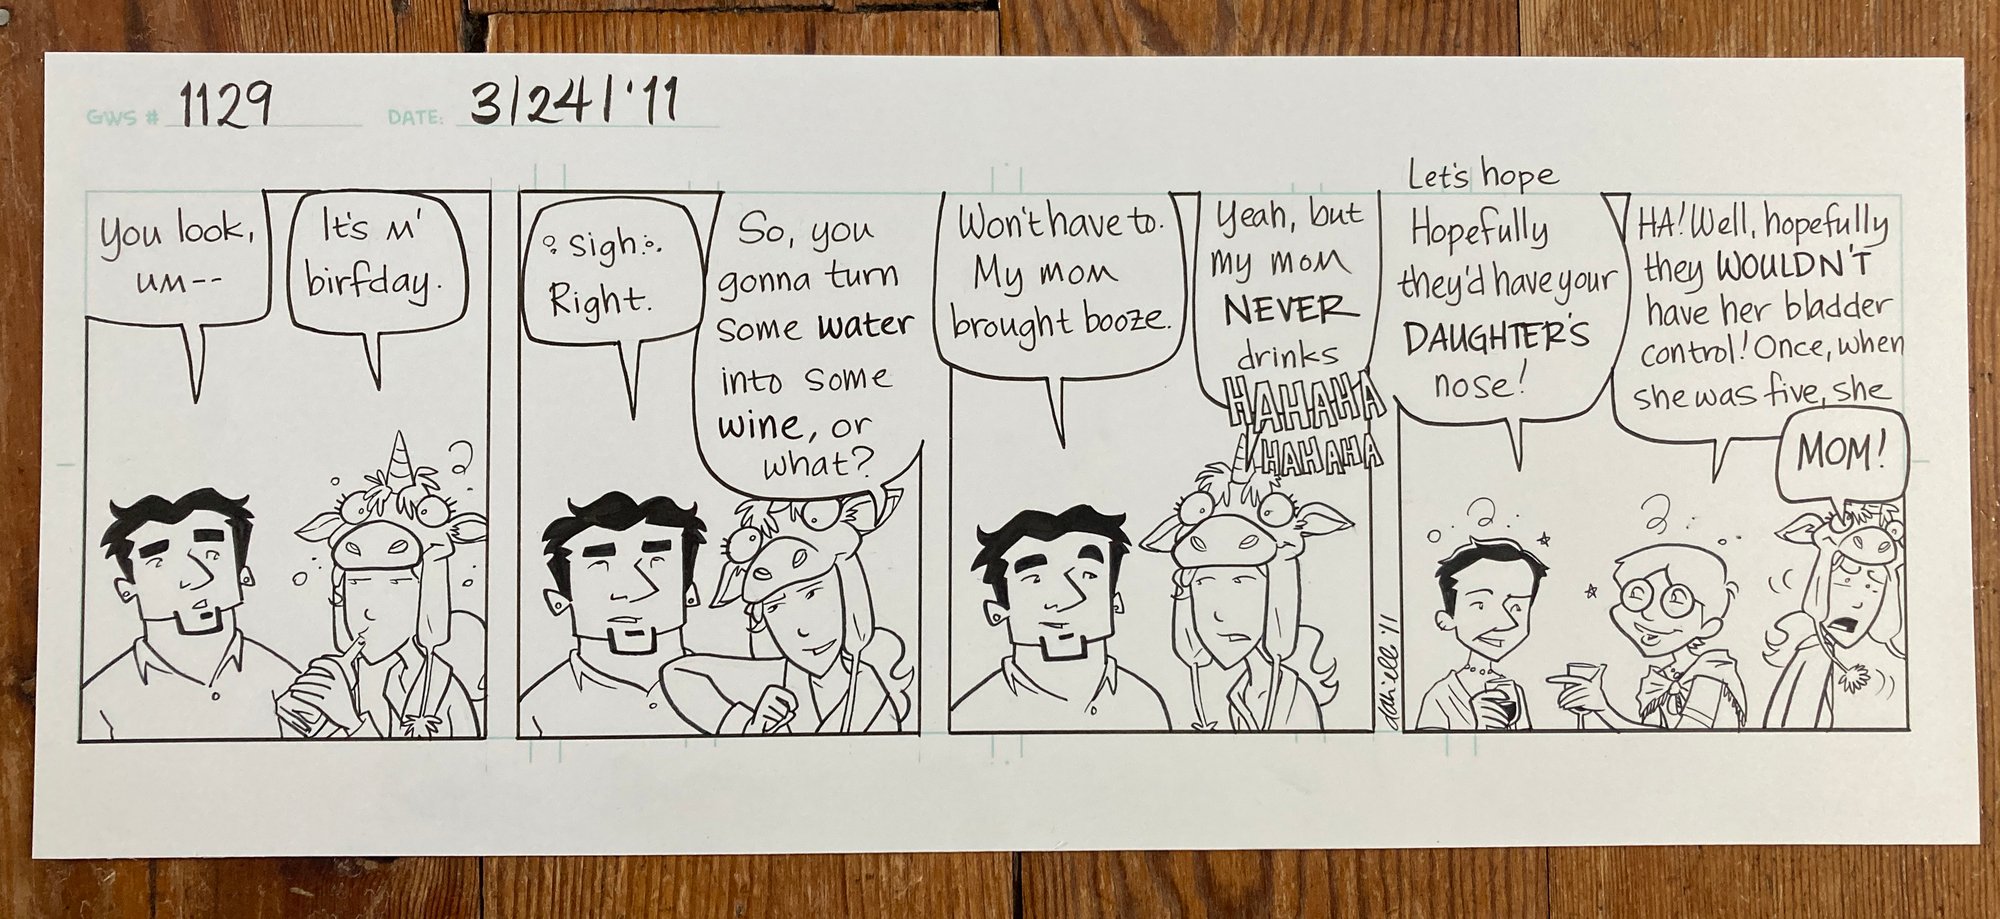 GWS # 1129 DATE: 3/24/'11
You look,
um--
It's m'
birfday.
sigh
Right.
So, you
gonna turn
some water
into some
wine, or
what?
Won't have to.
My mom
brought booze.
Yeah, but
my mom
NEVER
drinks
HAHAHA
HAHAHA
Let's hope
Hopefully
they'd have your
DAUGHTER'S
nose!
HA! Well, hopefully
they WOULDN'T
have her bladder
control! Once, when
she was five, she
MOM!
danielle '11